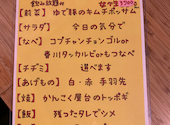 飲み放題付
【前菜】ゆで豚のキムチポッサム
【サラダ】今日の気分で
【なべ】コプチャンチョンゴルor
春川タッカルビorもつなべ
【チヂミ】選べます
【あげもの】白・赤 手羽先
【焼】かんこく屋台のトッポギ
【飯】残ったタレでシメ